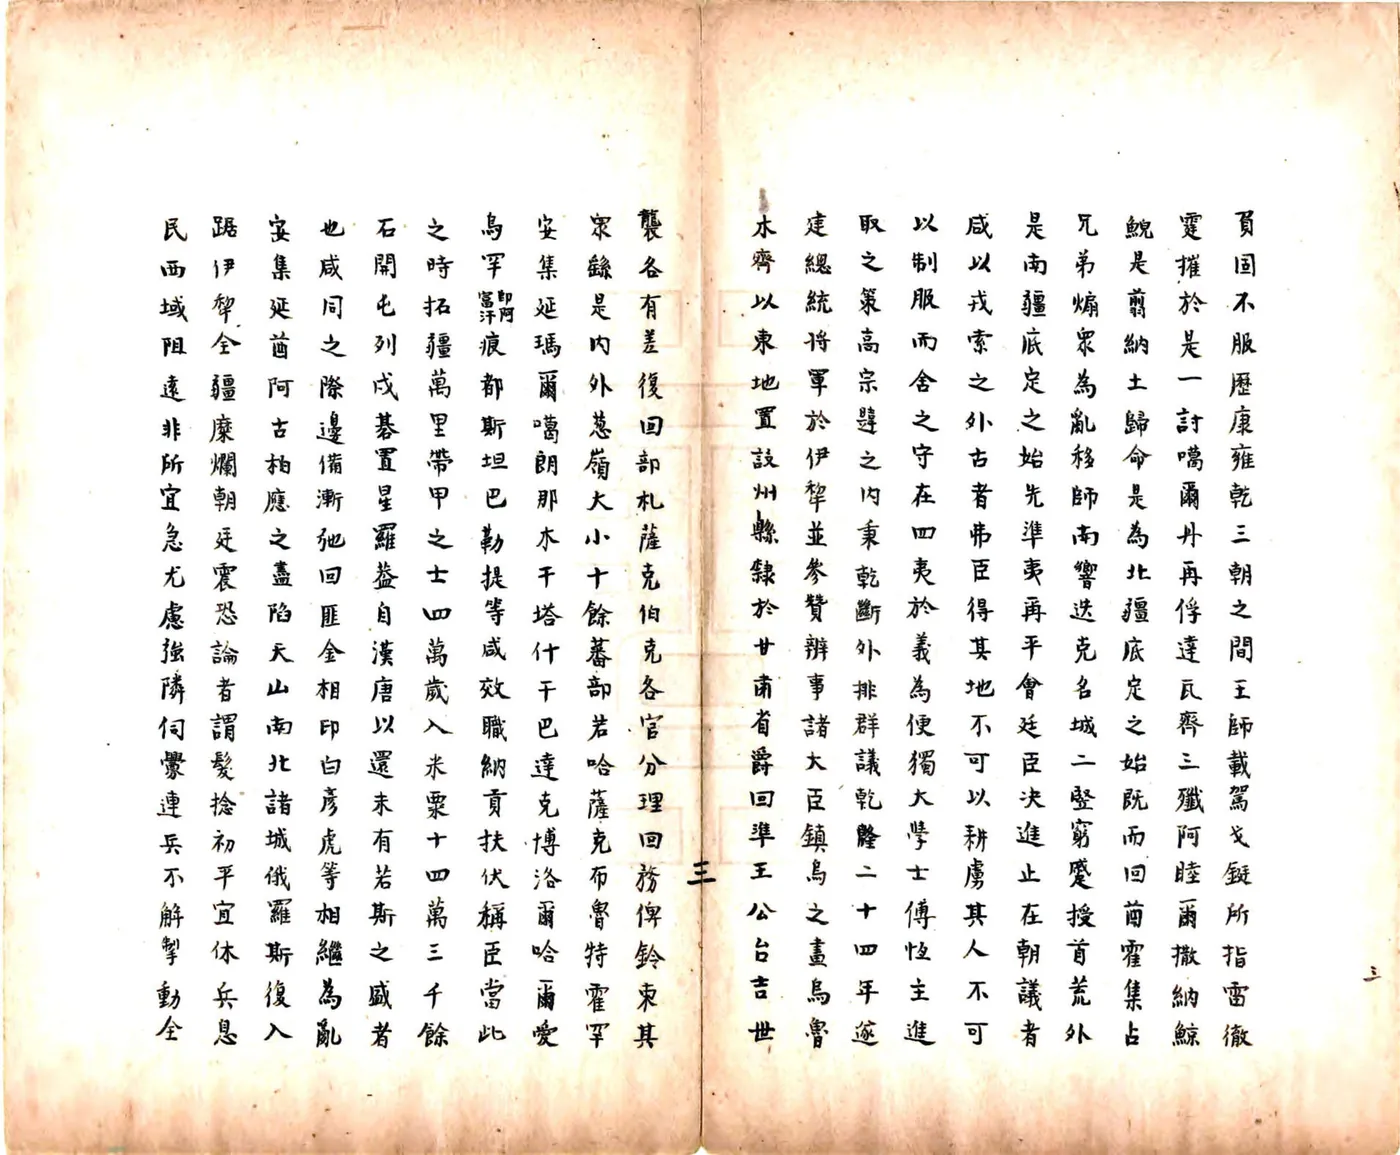 負固不服歷康雍乾三朝之間王師載駕戈鋋所指雷徹
霆摧於是一討噶爾丹再俘達瓦齊三殲阿睦爾撒納鯨
鯢是翦納土歸命是為北疆底定之始既而回酋霍集占
兄弟煽眾為亂移師南響迭克名城二豎窮蹙授首荒外
是南疆底定之始先準夷再平會廷臣決進止在朝議者
咸以戎索之外古者弗臣得其地不可以耕虜其人不可
以制服而舍之守在四夷於義為便獨大學士傅恆主進
取之策高宗韙之內秉乾斷外排群議乾隆二十四年遂
建總統將軍於伊犁並參贊辦事諸大臣鎮烏之畫烏魯
木齊以東地置設州縣隸於甘肅省爵回準王公台吉世
三
三
襲各有差復回部札薩克伯克各官分理回務俾鈐束其
眾繇是內外蔥嶺大小十餘蕃部若哈薩克布魯特霍罕
安集延瑪爾噶朗那木干塔什干巴達克博洛爾哈爾愛
烏罕即阿富汗痕都斯坦巴勒提等咸效職納貢扶伏稱臣當此
之時拓疆萬里帶甲之士四萬歲入米粟十四萬三千餘
石開屯列戍碁置星羅葢自漢唐以還未有若斯之盛者
也咸同之際邊備漸弛回匪金相印白彥虎等相繼為亂
安集延酋阿古柏應之盡陷天山南北諸城俄羅斯復入
踞伊犁全疆糜爛朝廷震恐論者謂髮捻初平宜休兵息
民西域阻遠非所宜急尤慮強隣伺釁連兵不解掣動全